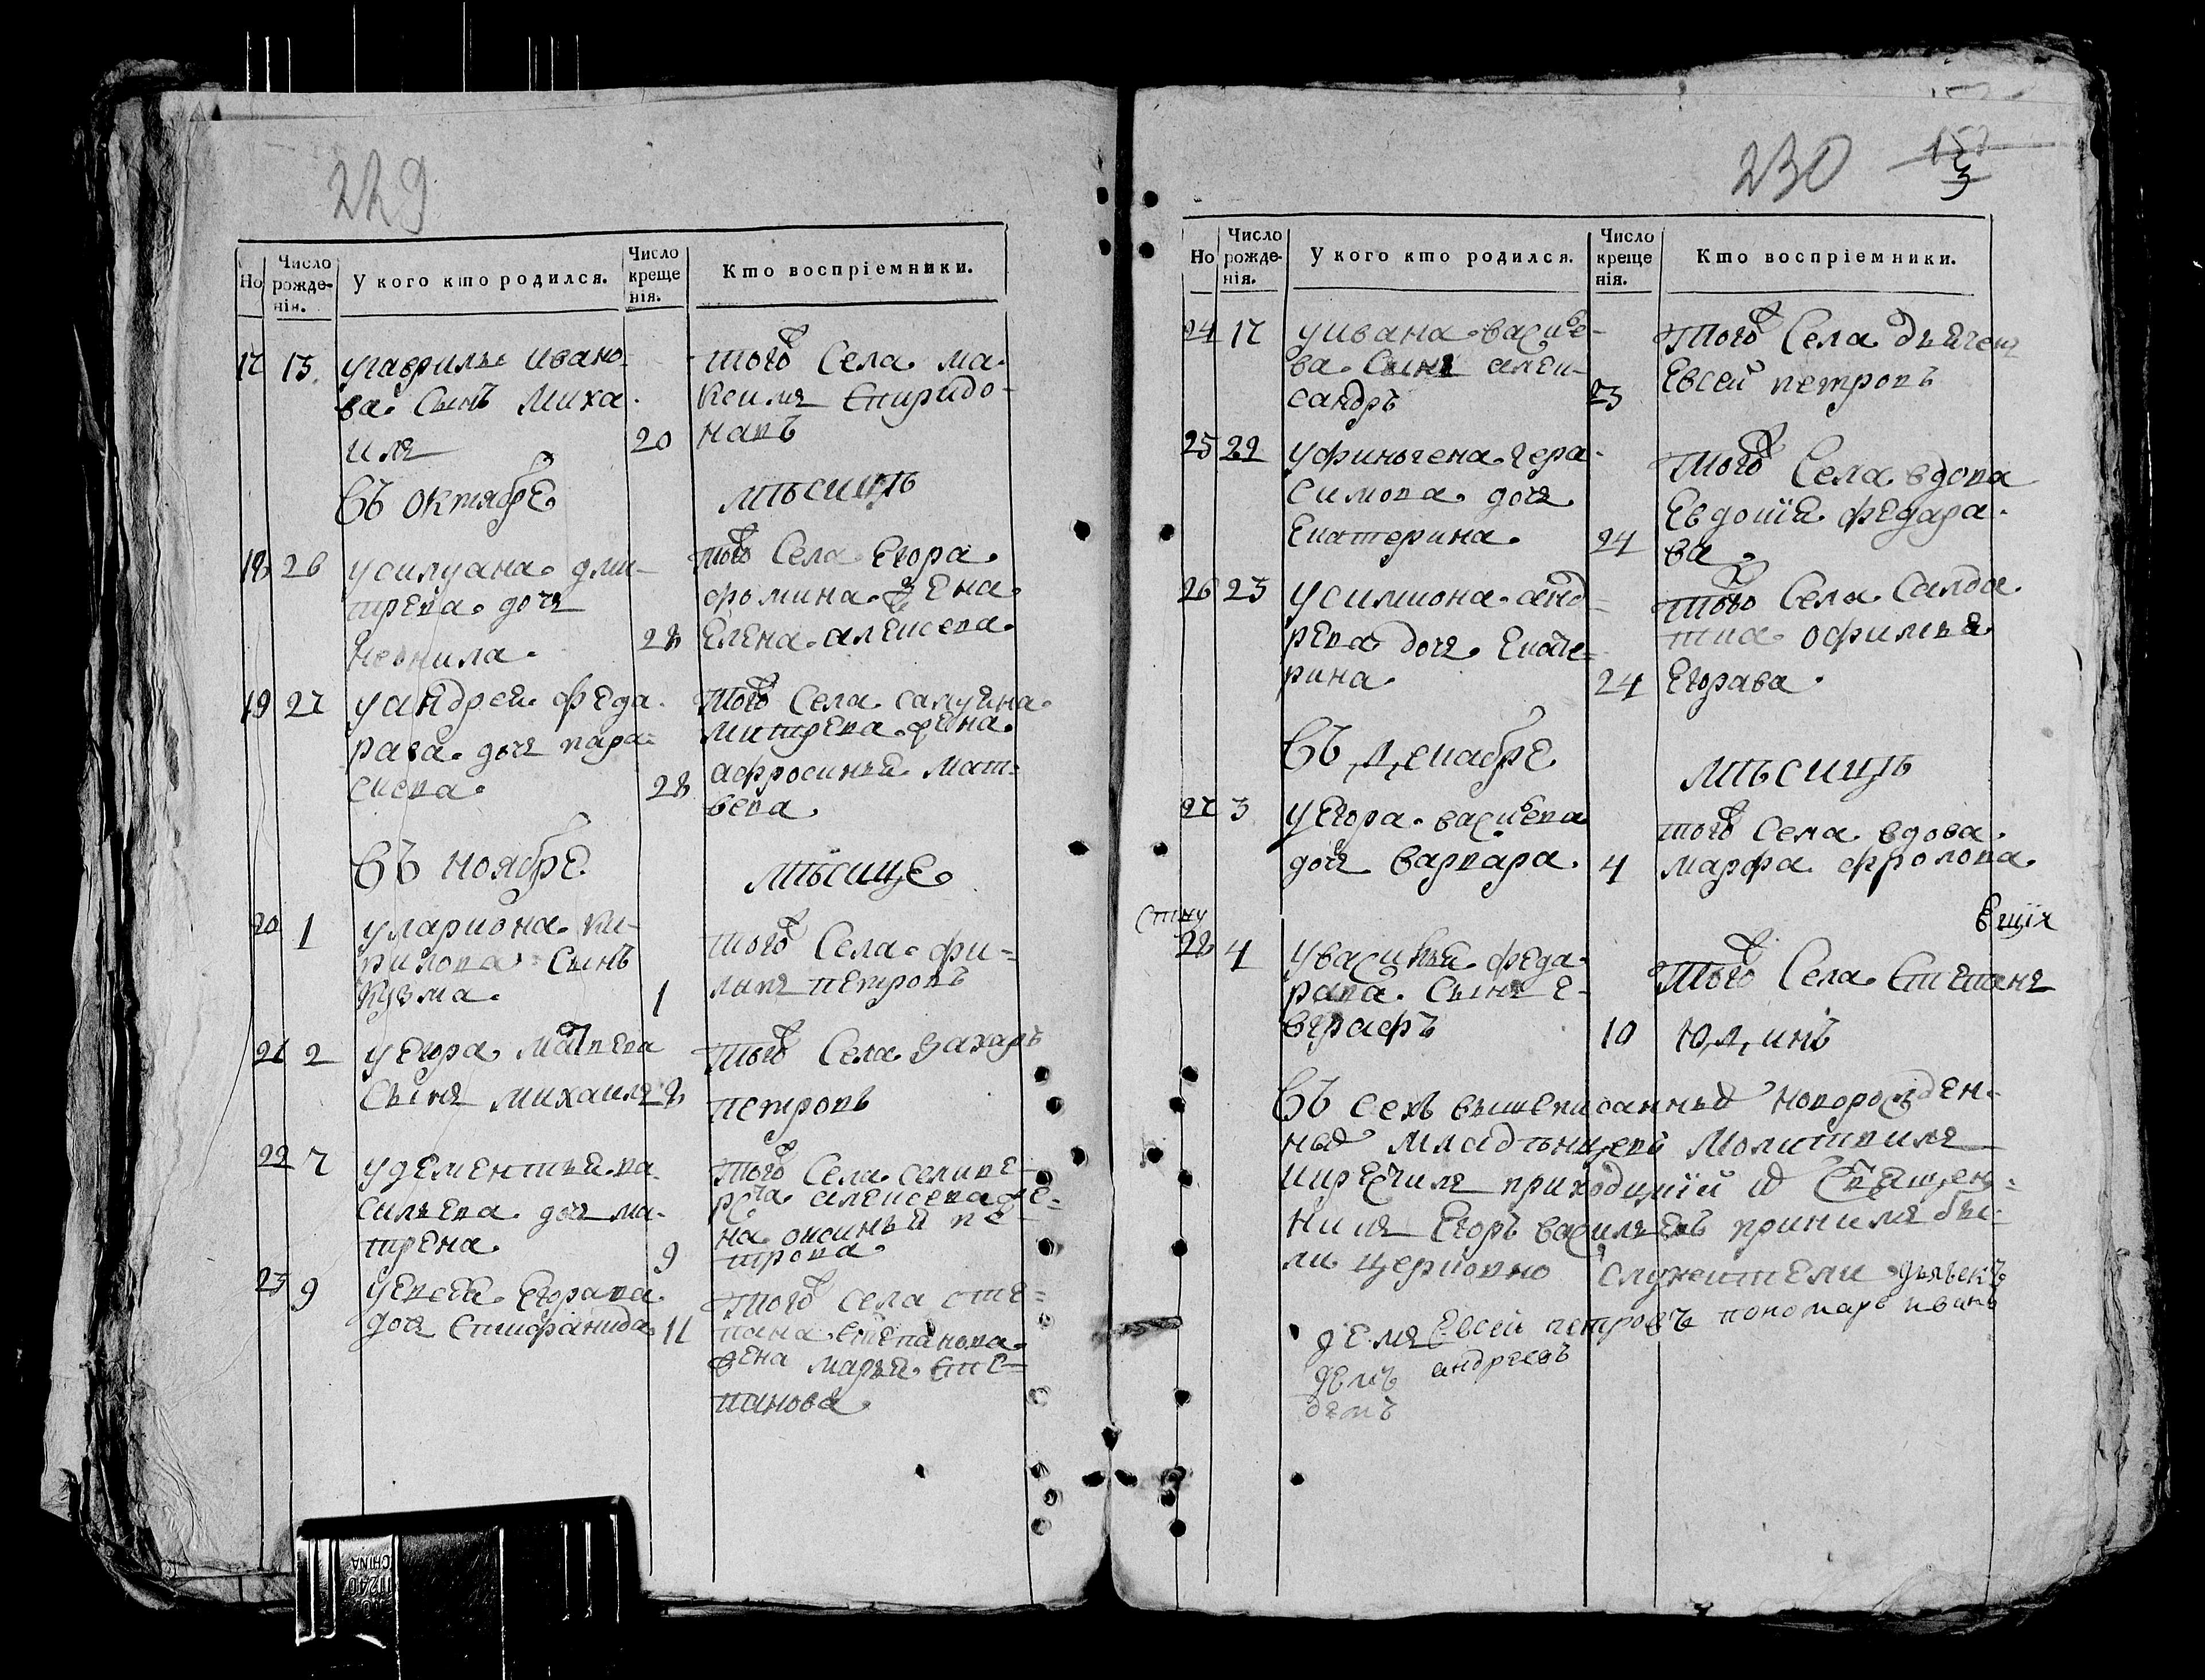 229
Но
Число рожде- нія.
У кого кто родился.
Число креще нія.
Кто воспріемники.
17 13 угаврилы ивано-
ва сынъ миха
ила 20
того села ма-
ксимъ спиридо-
новъ
Въ октябре мѣсицѣ
18 26 усилуана дми-
трева дочь
неонила 28
того села егора
фомина жена
елена алексева
19 27 уандрея феда-
рава дочь пара-
скева 28
того села салуяна
митрева жена
афросинья мат-
вева
Въ ноябре мѣсице
20 1 улариона ки-
рилова сынъ
кузма 1
того села фи-
липъ петровъ
21 2 уегора матвева
сынъ михаилъ 8
того села захаръ
петровъ
22 7 удементья ва
сильева дочь ма-
трена 9
того села селиве-
рста алексева же-
на оксинья пе-
трова
23 9 уевсея егорава
дочь епифанида 11
того села сте-
пана степанова
жена марья сте-
панова
230
Но
Число рожде- нія.
У кого кто родился.
Число креще нія.
Кто воспріемники.
24 17 уивана васие-
ва сынъ алек-
сандръ 23
того села дьячекъ
евсей петровъ
25 22 уфиногена гера-
симова дочь
екатерина 24
того села вдова
евдокия федара-
ва
26 23 усимиона анд-
рева дочь екате-
рина 24
того села салда
тка офимья
егорава
Въ декабре мѣсицѣ
27 3 уегора васиева
дочь варвара 4
того села вдова
марфа фролова
28 4 увасилья феда-
рава сынъ е-
вграфъ 10
того села степанъ
юдинъ
Въ сехъ вышеписанныхъ новорожден-
ныхъ младѣнцевъ молитвилъ
икрестилъ приходский священ-
никъ егоръ василевъ принемъ бы-
ли церковно служители дьячекъ
евсей петровъ пономарь иванъ
андреевъ